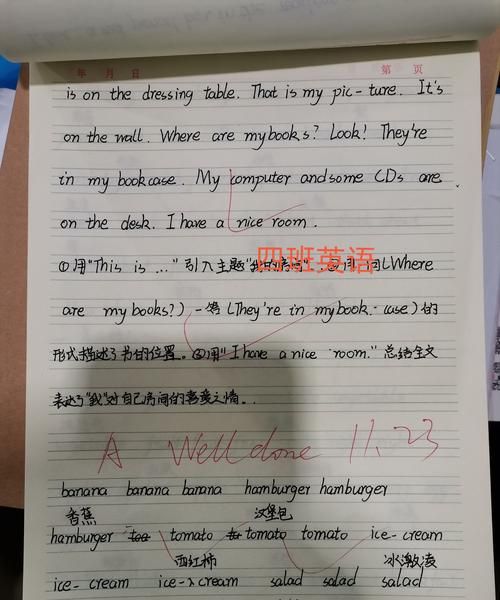 年 月 日 第 页
is on the dressing table. That is my pic-ture. It's
on the wall. Where are my books? Look! They're
in my bookcase. My computer and some CDs are
on the desk. I have a nice room.
四班英语
①用"This is ..."引入主题"我的房间".②用 问(Where
are my books?)一答(They're in my book-case)的
形式描述了书的位置。③用"I have a nice room."总结全文
表达了"我"对自己房间的喜爱之情。
A Well done 11.23
banana banana banana hamburger hamburger
香蕉 汉堡包
hamburger tomato tomato tomato ice-cream
西红柿 冰激凌
ice-cream ice-cream salad salad salad